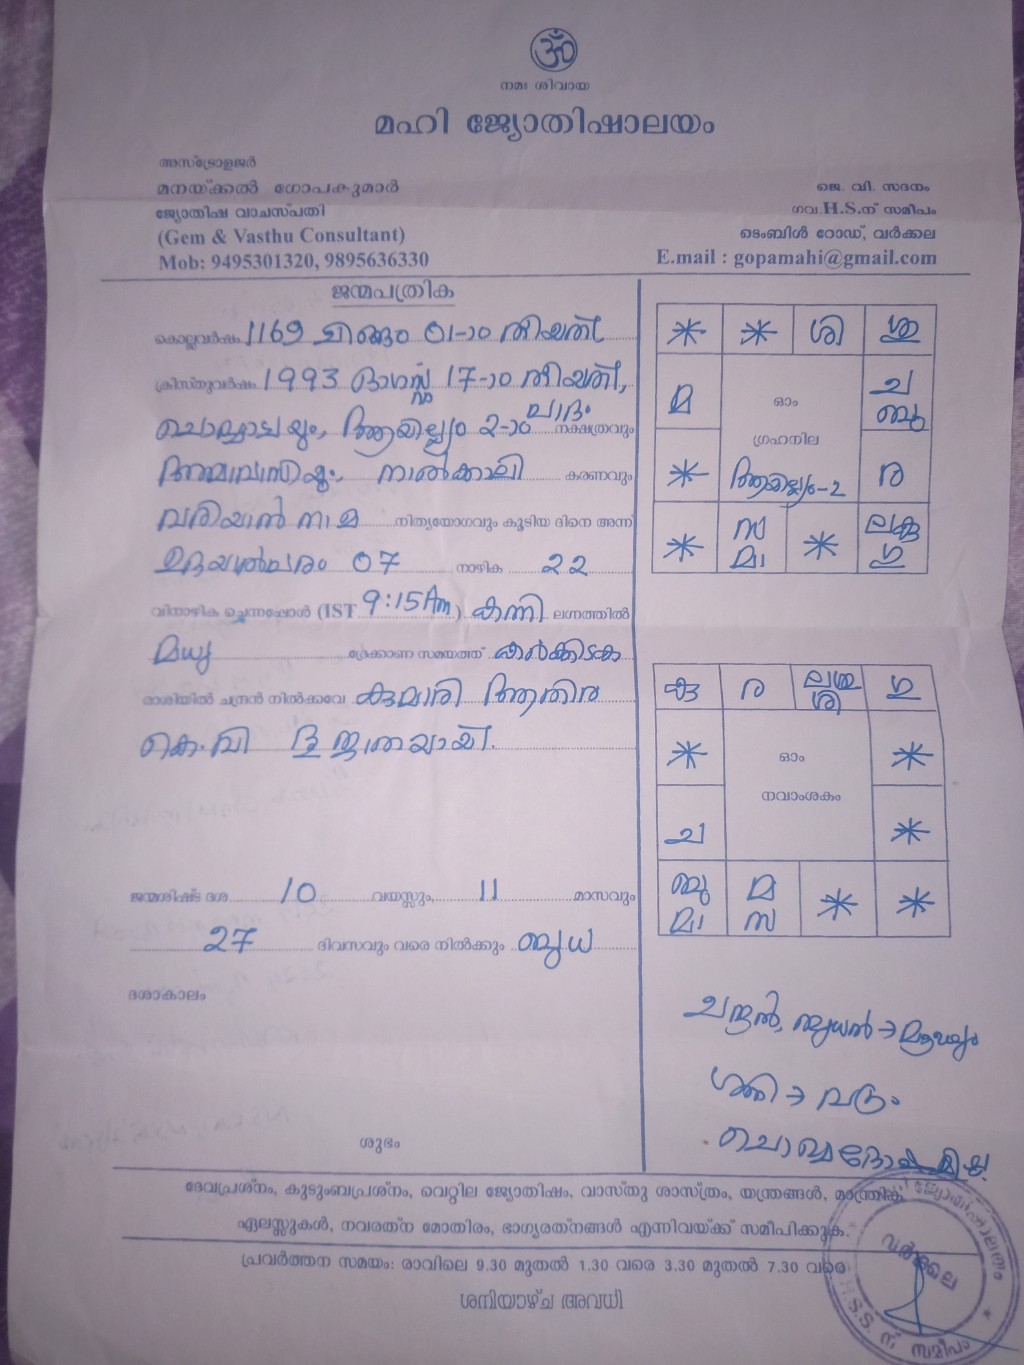 ॐ
നമഃ ശിവായ
മഹി ജ്യോതിഷാലയം
അസ്ട്രോളജർ
മനയ്ക്കൽ ഗോപകുമാർ
ജ്യോതിഷ വാചസ്പതി
(Gem & Vasthu Consultant)
Mob: 9495301320, 9895636330
ജെ. വി. സദനം
ഗവ.H.S.ന് സമീപം
ടെംബിൾ റോഡ്, വർക്കല
E.mail : gopamahi@gmail.com
ജന്മപത്രിക
കൊല്ലവർഷം 1169 ചിങ്ങം 01-ാം തീയതി
ക്രിസ്തുവർഷം 1993 ഓഗസ്റ്റ് 17-ാം തീയതി,
ചൊവ്വാഴ്ചയും, ആയില്യം 2-ാം പാദം നക്ഷത്രവും
അമാവാസിയും, നാൽക്കാലി കരണവും
വരിയാൻ നാമ നിത്യയോഗവും കൂടിയ ദിനെ അന്ന്
ഉദയാൽപരം 07 നാഴിക 22
വിനാഴിക ചെന്നപ്പോൾ (IST 9:15Am) കന്നി ലഗ്നത്തിൽ
മധ്യ ദ്രേക്കാണ സമയത്ത് കർക്കിടക
രാശിയിൽ ചന്ദ്രൻ നിൽക്കവേ കുമാരി ആതിര
കെ.ബി ഭൂജാതയായി.
ജന്മശിഷ്ട ദശ 10 വയസ്സും, 11 മാസവും
27 ദിവസവും വരെ നിൽക്കും ബുധ
ദശാകാലം
ശുഭം
* * ശി ശു
മ ഓം ച ബു
ഗ്രഹനില
* ആയില്യം-2 ര
* സ മാ * ലകു ഗു
കു ര ലശു ശി ഗു
* ഓം *
നവാംശകം
ച *
ബു മാ മ സ * *
ചന്ദ്രൻ, ബുധൻ → മൗഢ്യം
ശനി → വക്രം
ദേവപ്രശ്നം, കുടുംബപ്രശ്നം, വെറ്റില ജ്യോതിഷം, വാസ്തു ശാസ്ത്രം, യന്ത്രങ്ങൾ, മാന്ത്രിക
ഏലസ്സുകൾ, നവരത്ന മോതിരം, ഭാഗ്യരത്നങ്ങൾ എന്നിവയ്ക്ക് സമീപിക്കുക.
പ്രവർത്തന സമയം: രാവിലെ 9.30 മുതൽ 1.30 വരെ 3.30 മുതൽ 7.30 വരെ
ശനിയാഴ്ച അവധി
ജ്യോതിഷാലയം
വർക്കല
H.S.S. ന് സമീപം